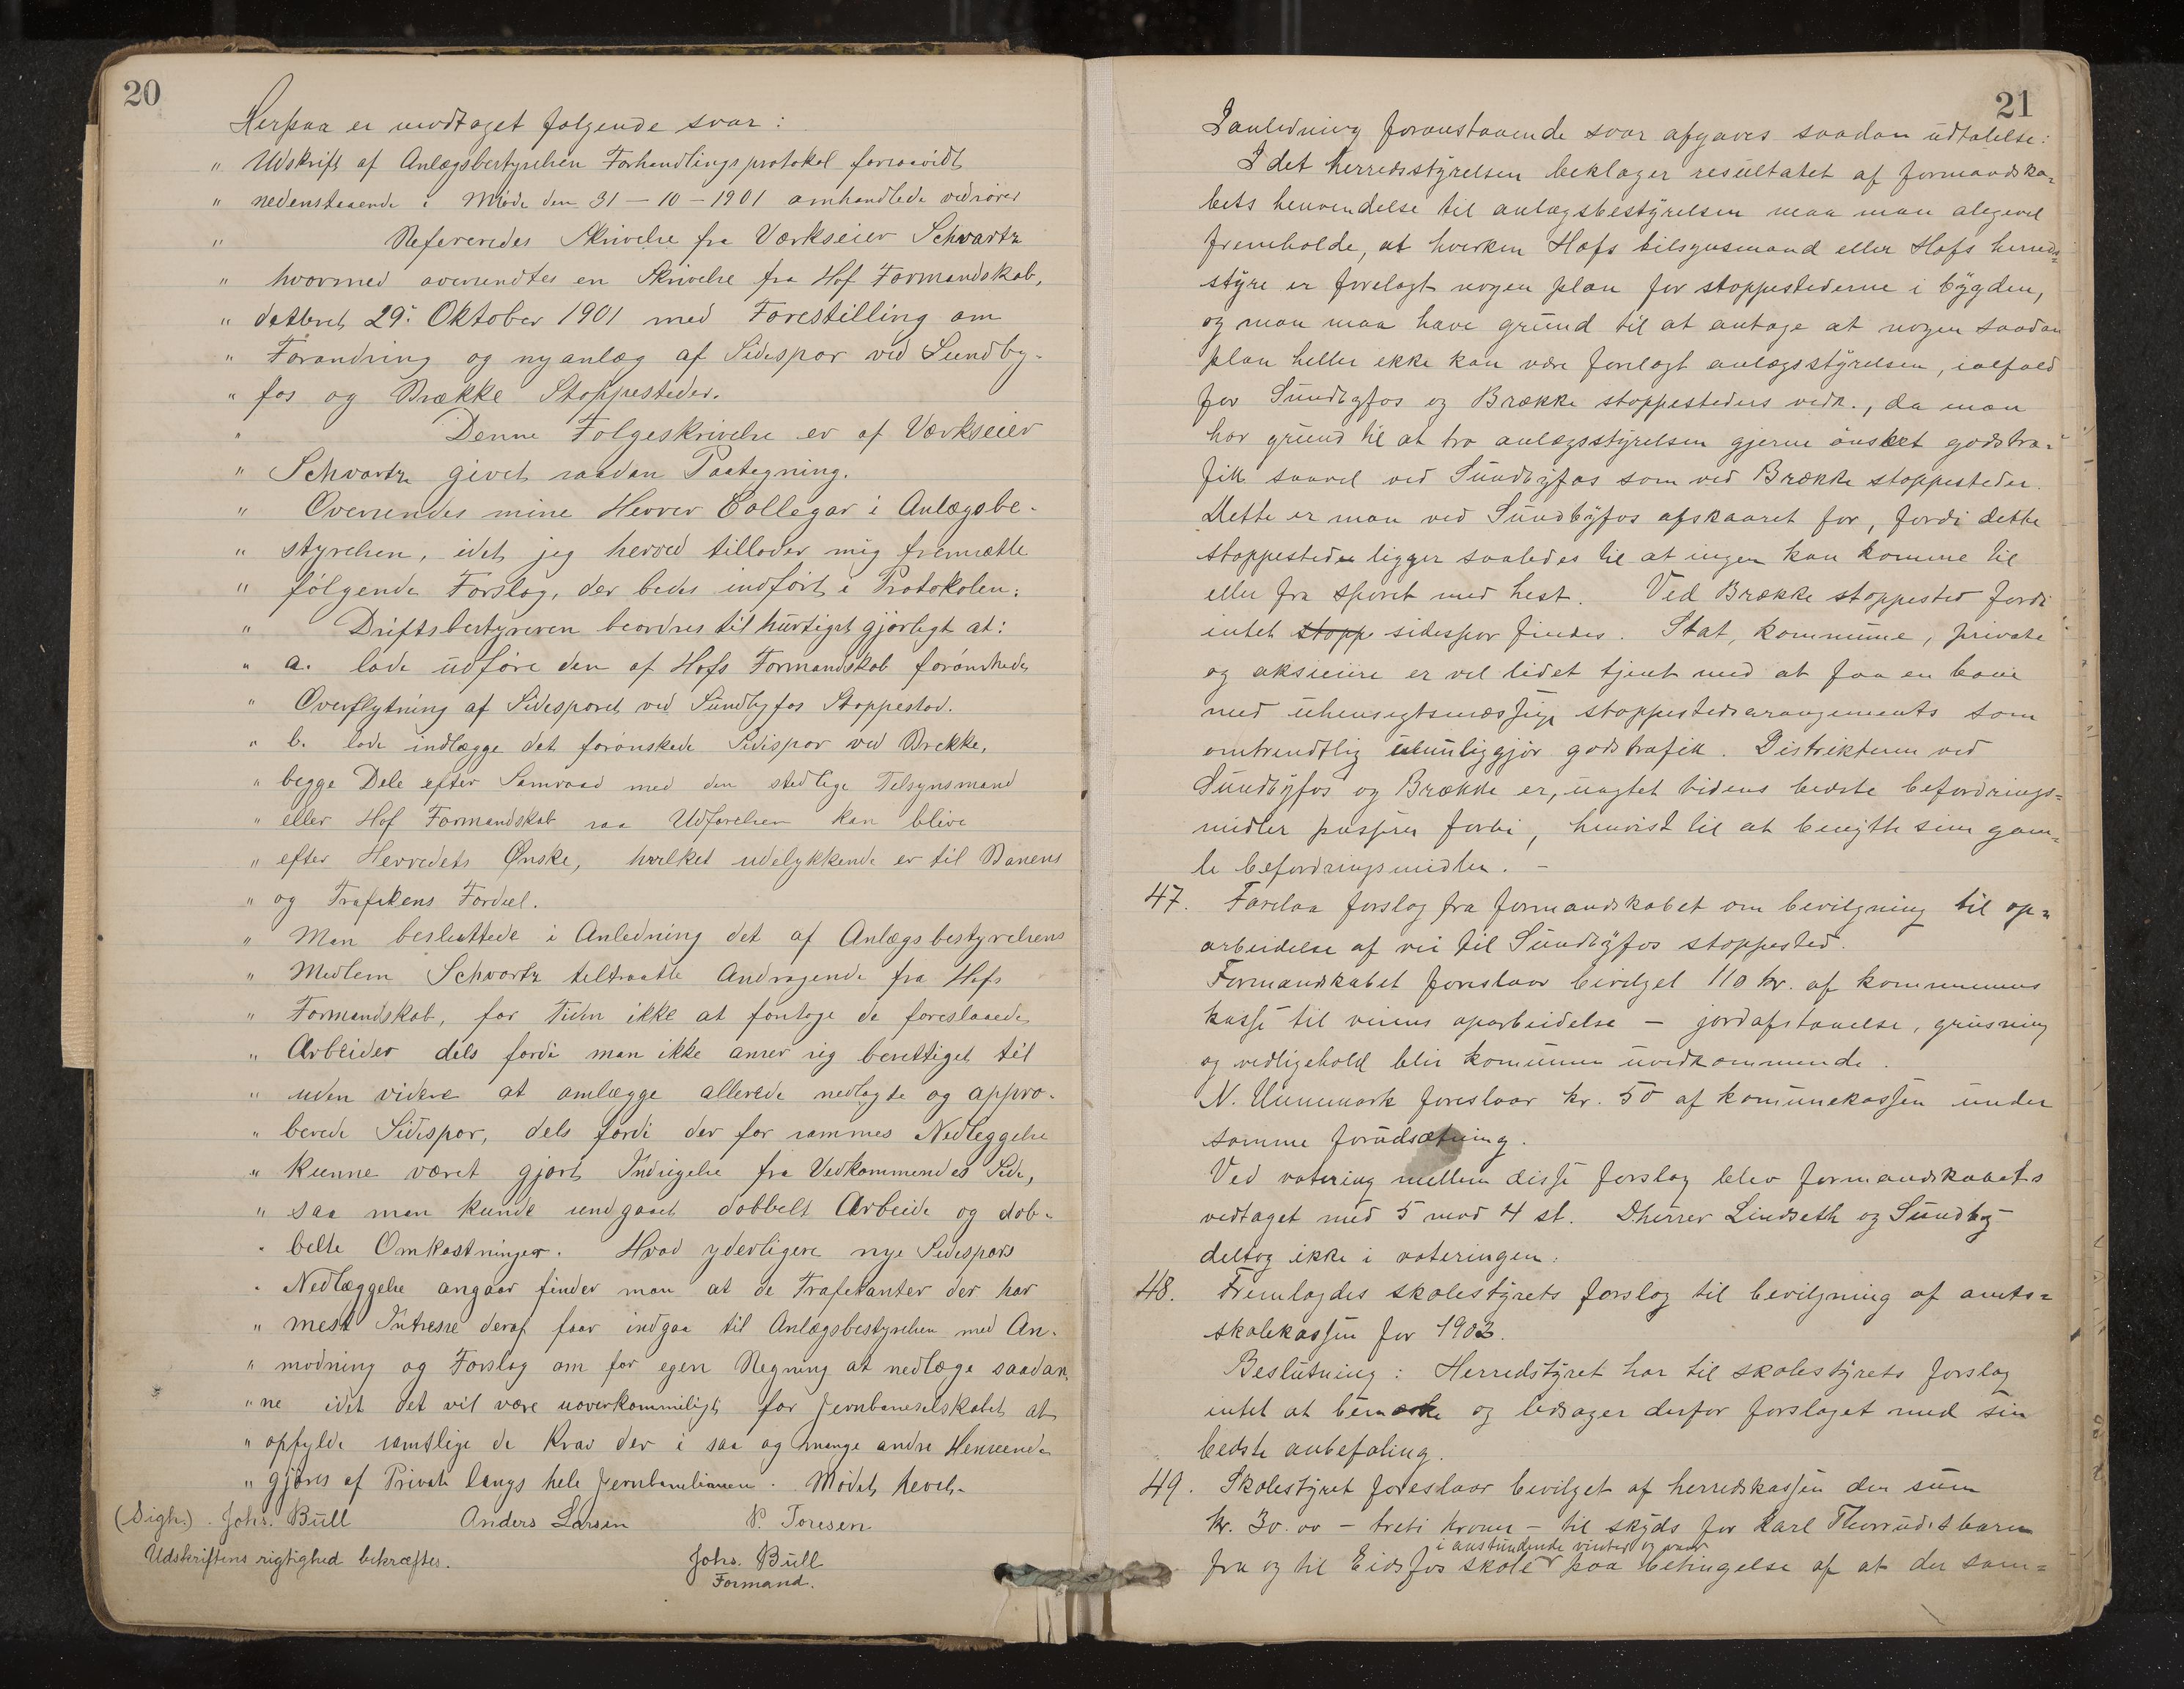 20
Herpaa er modtaget følgende svar:
" Udskrift af Anlægsbestyrelsen Forhandlingsprotokol forsaavidt
" nedenstaaende i Møde den 31-10-1901 omhandlede vedrører
" Refereredes Skrivelse fra Værkseier Schwartz
" hvormed oversendtes en Skrivelse fra Hof Formandskab,
" datteret 29: Oktober 1901 med Forestilling om
" Forandring og nyanlæg af Sidespor ved Sundby-
" fos og Brække Stoppesteder.
" Denne Følgeskrivelse er af Værkseier
" Schwartz givet saadan Paategning.
" Oversendes mine Herrer Collegar i Anlægsbe-
" styrelsen, idet jeg herved tillader mig fremsætte
" følgende Forslag, der bedes indført i Protokolen:
" Driftsbestyreren beordres til hurtigst gjørligt at:
" a. lade udføre den af Hofs Formandskab forønskede
" Overflytning af Sidesporet ved Sundbyfos Stoppested.
" b. lade indlægge det forønskede Sidespor ved Brekke,
" begge Dele efter Samraad med den stedlige Tilsynsmand
" eller Hof Formandskab saa Udførelsen kan blive
" efter Herredets Ønske, hvilket udelukkende er til Banens
" og Trafikens Fordeel.
" Man besluttede i Anledning det af Anlægsbestyrelsens
" Medlem Schwartz tiltraatte Andragende fra Hofs
" Formandskab, for Tiden ikke at foretage de foreslaaede
" Arbeider dels fordi man ikke anser sig berettiget til
" uden videre at omlægge allerede nedlagte og appro-
" berede Sidespor, dels fordi der før sammes Nedleggelse
" kunne været gjort Indsigelse fra Vedkommendes Side,
" saa man kunde undgaaet dobbelt Arbeide og dob-
" belte Omkostninger. Hvad yderligere nye Sidespors
" Nedlæggelse angaar finder man at de Trafikanter der har
" mest Intresse deraf faar indgaa til Anlægsbestyrelsen med An-
" modning og Forslag om for egen Regning at nedlæge saadan
" ne idet det vil være uoverkommeligt for Jernbaneselskabet at
" opfylde samtlige de Krav der i saa og mange andre Henseender
" gjøres af Private langs hele Jernbanelinien. Mødet hevet.
(Sign.) Johs. Bull Anders Larsen P. Toresen
Udskriftens rigtighed bekræftes. Johs. Bull
Formand.
21
I anledning foranstaaende svar afgaves saadan udtalelse:
I det herredsstyrelsen beklager resultatet af formandska-
bets henvendelse til anlægsbestyrelsen maa man alegevel
fremholde, at hverken Hofs tilsynsmand eller Hofs herreds-
styre er forelagt nogen plan for stoppestederne i bygden,
og man maa have grund til at antage at nogen saadan
plan heller ikke kan være forelagt anlægsstyrelsen, ialfald
for Sundbyfos og Brække stoppesteders vedk., da man
har grund til at tro anlægsstyrelsen gjerne ønsket godstra-
fik saavel ved Sundbyfos som ved Brække stoppesteder.
Dette er man ved Sundbyfos afskaaret for, fordi dette
stoppested ligger saaledes til at ingen kan komme til
eller fra sporet med hest. Ved Brække stoppested fordi
intet stopp sidespor findes. Stat, kommune, private
og aksieeiere er vel lidet tjent med at faa en bane
med uhensigtsmæssige stoppestedsarangements som
omtrendtlig umuliggjør godstrafik. Distrikterne ved
Sundbyfos og Brække er, uagtet tidens bedste befordrings-
midler passerer forbi, henvist til at benytte sine gam-
le befordringsmidler. -
47. Forelaa forslag fra formandskabet om bevilgning til op-
arbeidelse af vei til Sundbyfos stoppested.
Formandskabet foreslaar bevilget 110 kr. af kommunens
kasse til veiens oparbeidelse - jordafstaaelse, grusning
og vedligehold blir komunen uvedkommende.
N. Unnemark foreslaar kr. 50 af komunekassen under
samme forudsætning.
Ved votering mellem disse forslag blev formandskabets
vedtaget med 5 mod 4 st. Dherrer Lindseth og Sundby
deltog ikke i voteringen.
48. Fremlagdes skolestyrets forslag til bevilgning af amts-
skolekassen for 1903.
Beslutning: Herredstyret har til skolestyrets forslag
intet at bemærke og ledsager derfor forslaget med sin
bedste anbefaling.
49. Skolestyret foreslaar bevilget af herredskassen den sum
kr. 30.00 - treti kroner - til skyds for Karl Thorrudets barn
i anstundende vinter og vaar
fra og til Eidsfos skole paa betingelse af at der sam-